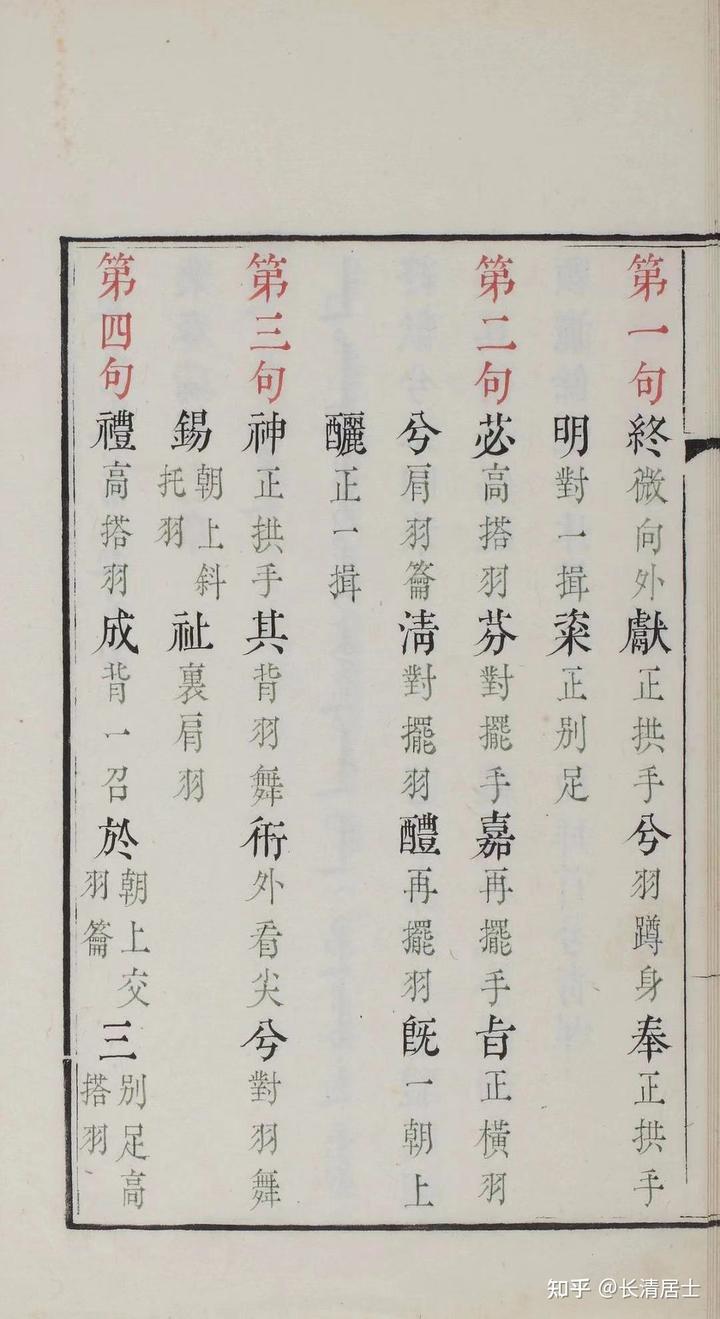 第一句終微向外獻正拱手兮羽蹲身奉正拱手
明對一揖粢正别足
第二句苾高搭羽芬對擺手嘉再擺手㫖正橫羽
兮肩羽籥淸對擺羽醴再擺羽既一朝上
釃正一揖
第三句神正拱手其背羽舞衎外看尖兮對羽舞
錫朝上斜托羽祉裏肩羽
第四句禮高搭羽成背一召於朝上交羽籥三别足高搭羽
知乎 @长清居士